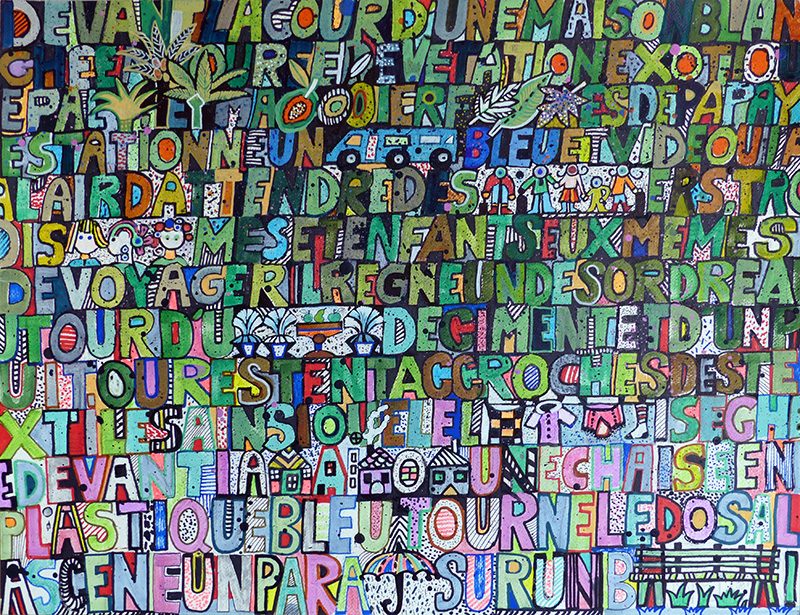 DEVANTLACOURDUNEMAISONBLAN
OUREEDEVE ETATIONEXOTIQ
ESDEPAPAY
ESTATIONNEUN BLEUETVIDEQUIA
LAIRDATTENDREDES ERSTRO
DIS MESETENFANTSEUXMEMES
DEVOYAGERILREGNEUNDESORDREA
UTOURDU DECIMENTETDUNP
UITOURESTENTACCROCHESDESTE
XTILESAINSIQUELEL ISEGHE
EDEVANTLA UNECHAISEEN
PLASTIQUEBLEUTOURNELEDOSAL
ASCENEUNPARA SURUNB